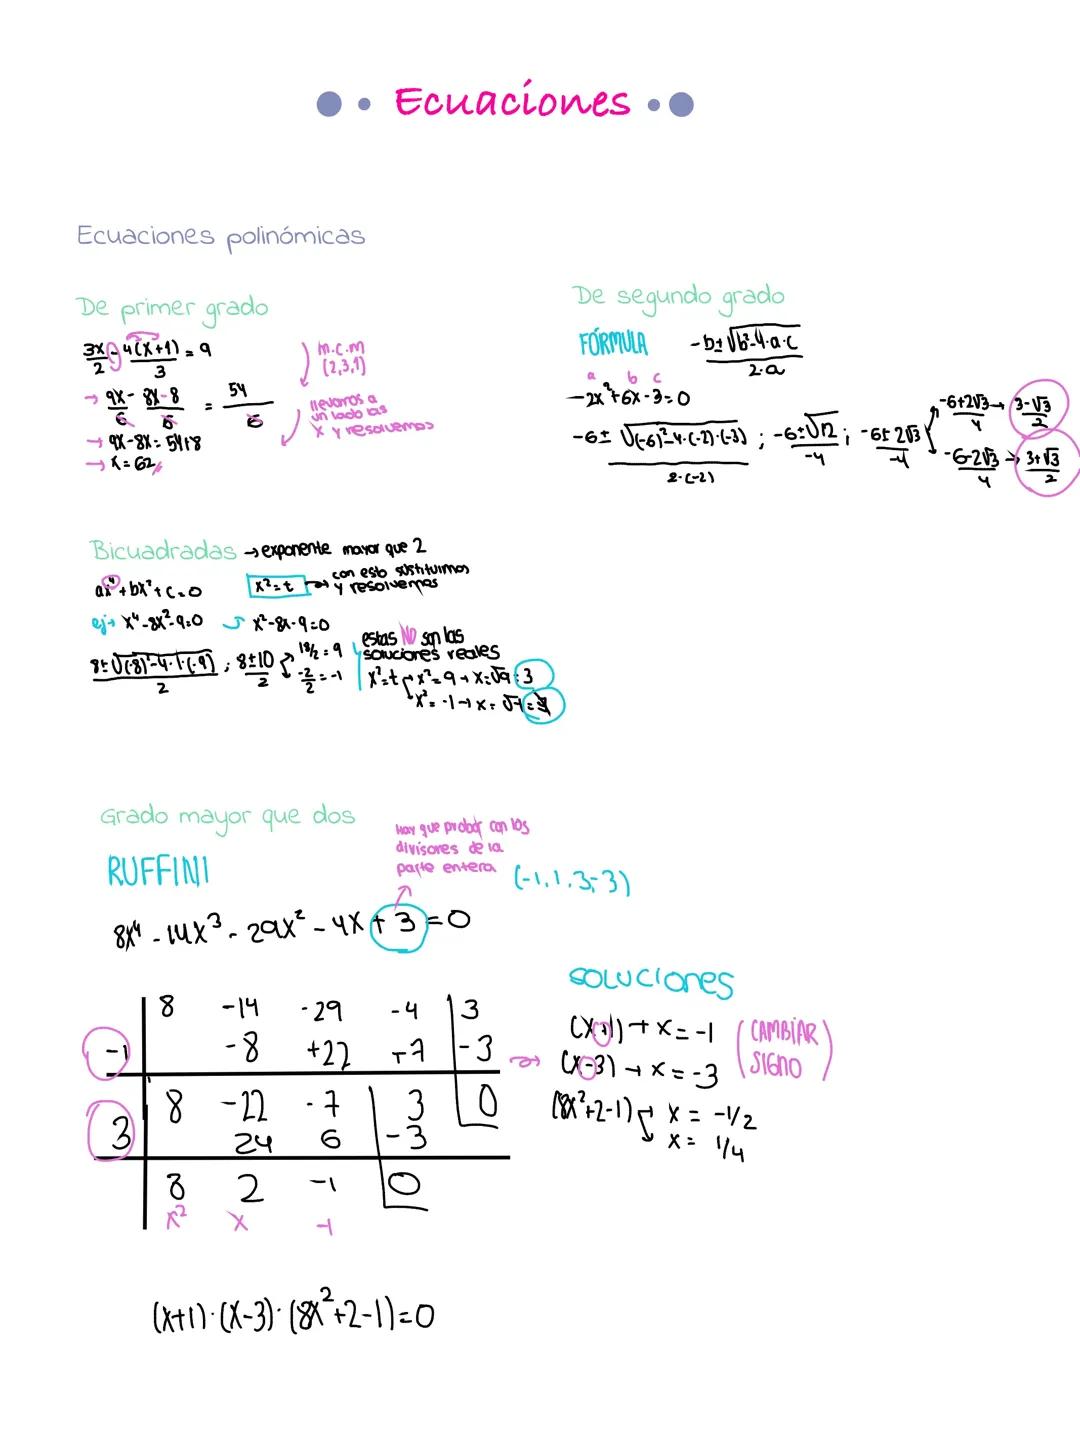 Ecuaciones
Ecuaciones polinómicas
De primer grado
3x/2 - 4(x+1)/3 = 9
→ 9x/6 - 8x-8/6 = 54/6
→ 9x-8x= 54+8
→ x= 62
m.c.m
(2,3,1)
llevamos a
un lado las
x y resolvemos
De segundo grado
FÓRMULA -b±√b²-4·a·c / 2·a
a b c
-2x²+6x-3=0
-6± √(-6)²-4·(-2)·(-3) / 2·(-2) ; -6±√12 / -4 ; -6±2√3 / -4
-6+2√3 / 4 → 3-√3 / 2
-6-2√3 / 4 → 3+√3 / 2
Bicuadradas → exponente mayor que 2
ax⁴+bx²+c=0
x²=t → con esto sustituimos
y resolvemos
ej→ x⁴-8x²-9=0 x²-8x-9=0
8±√(-8)²-4·1·(-9) / 2 ; 8±10 / 2
18/2 = 9
-2/2 = -1
estas NO son las
soluciones reales
x²=t x²=9 → x=√9=3
x²=-1 → x=√-1=
Grado mayor que dos
RUFFINI
Hay que probar con los
divisores de la
parte entera
(-1,1,3,-3)
8x⁴-14x³-29x²-4x+3=0
8 -14 -29 -4 3
-1 -8 +22 +7 -3
8 -22 -7 3 0
3 24 6 -3
8 2 -1 0
x² x -1
SOLUCIONES
(x+1) → x=-1
(x-3) → x=-3
(CAMBIAR
SIGNO)
(8x²+2-1) x = -1/2
x = 1/4
(x+1)·(x-3)·(8x²+2-1)=0